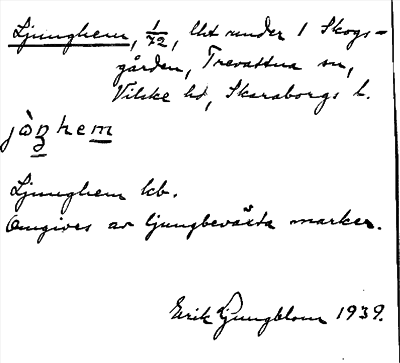 Ljunghem, 1/72, lht under 1 Skogs-
gården, Trevattna sn,
Vilske hd, Skaraborgs l.
Ljunghem kb.
Omgives av ljungbeväxta marker.
Erik Ljungblom 1939.